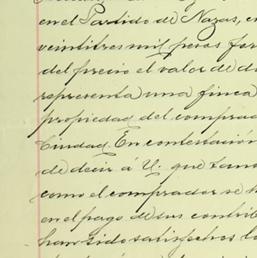 en el Partido de Nazas, en
veintitres mil pesos for
del precio el valor de d
representa una finca
propiedad del comprad
Ciudad. En contestación
de decir á U. que tan
como el comprador se h
en el pago de sus contrib
han sido satisfechos lo